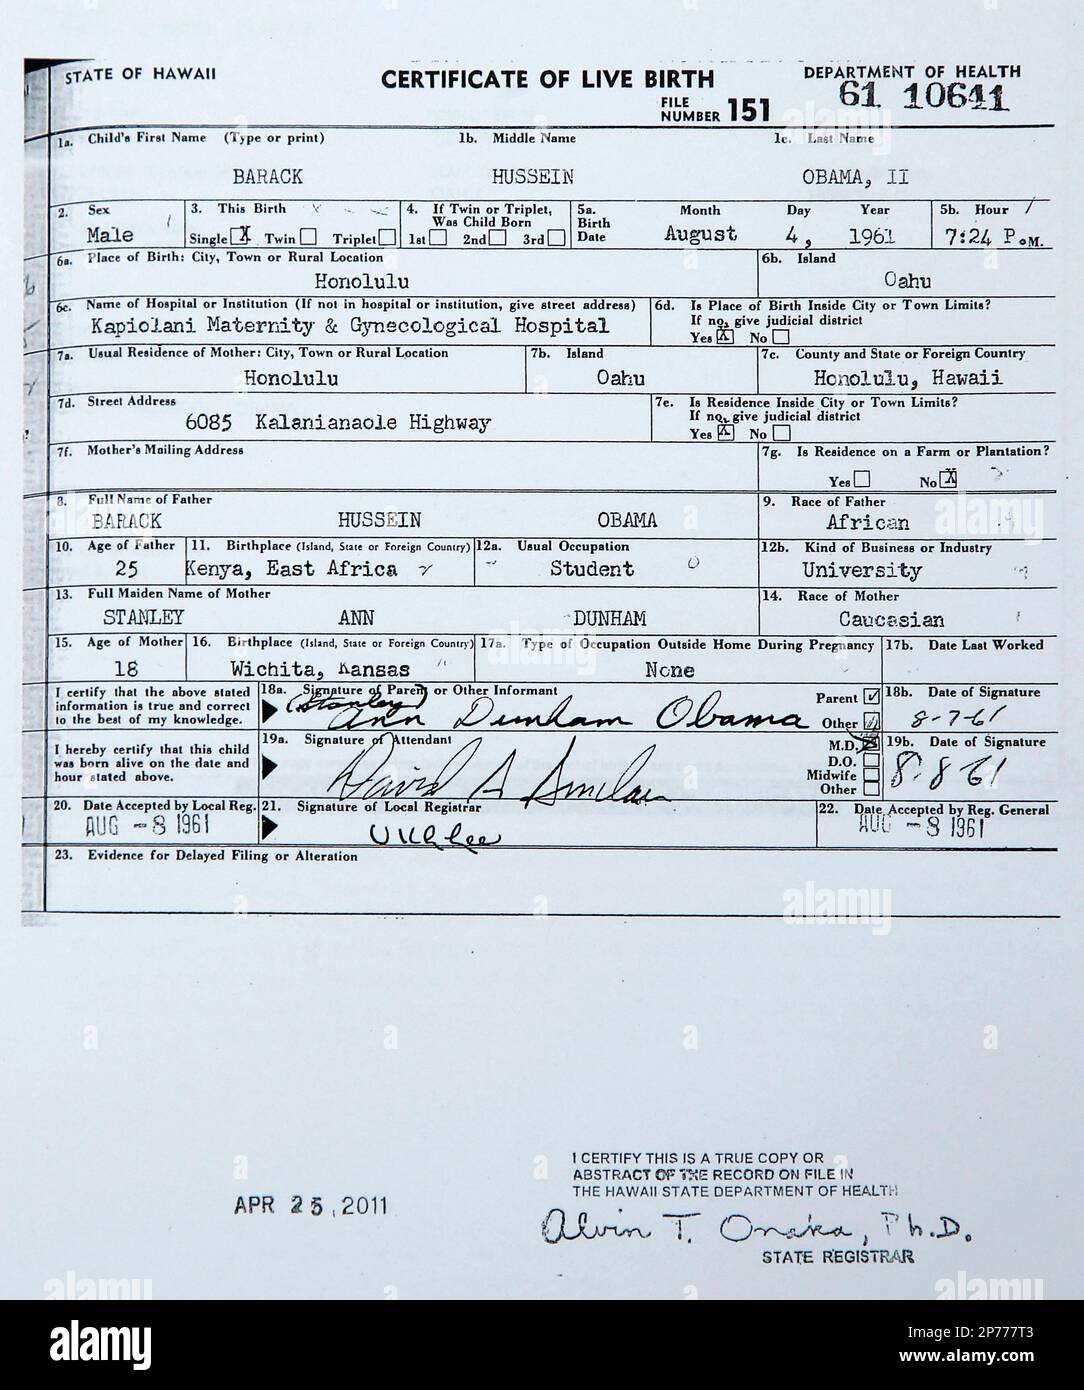 STATE OF HAWAII CERTIFICATE OF LIVE BIRTH DEPARTMENT OF HEALTH
FILE NUMBER 151 61 10641
1a. Child's First Name (Type or print) 1b. Middle Name 1c. Last Name
BARACK HUSSEIN OBAMA, II
2. Sex 3. This Birth 4. If Twin or Triplet, Was Child Born 5a. Birth Date Month Day Year 5b. Hour
Male Single X Twin Triplet 1st 2nd 3rd August 4, 1961 7:24 P.M.
6a. Place of Birth: City, Town or Rural Location 6b. Island
Honolulu Oahu
6c. Name of Hospital or Institution (If not in hospital or institution, give street address) 6d. Is Place of Birth Inside City or Town Limits?
If no, give judicial district
Kapiolani Maternity & Gynecological Hospital Yes X No
7a. Usual Residence of Mother: City, Town or Rural Location 7b. Island 7c. County and State or Foreign Country
Honolulu Oahu Honolulu, Hawaii
7d. Street Address 7e. Is Residence Inside City or Town Limits?
If no, give judicial district
6085 Kalanianaole Highway Yes X No
7f. Mother's Mailing Address 7g. Is Residence on a Farm or Plantation?
Yes No X
8. Full Name of Father 9. Race of Father
BARACK HUSSEIN OBAMA African
10. Age of Father 11. Birthplace (Island, State or Foreign Country) 12a. Usual Occupation 12b. Kind of Business or Industry
25 Kenya, East Africa Student University
13. Full Maiden Name of Mother 14. Race of Mother
STANLEY ANN DUNHAM Caucasian
15. Age of Mother 16. Birthplace (Island, State or Foreign Country) 17a. Type of Occupation Outside Home During Pregnancy 17b. Date Last Worked
18 Wichita, Kansas None
I certify that the above stated information is true and correct to the best of my knowledge.
18a. Signature of Parent or Other Informant Parent Other 18b. Date of Signature
(Stanley) Ann Dunham Obama 8-7-61
I hereby certify that this child was born alive on the date and hour stated above.
19a. Signature of Attendant M.D. D.O. Midwife Other 19b. Date of Signature
David A Sinclair 8-8-61
20. Date Accepted by Local Reg. 21. Signature of Local Registrar 22. Date Accepted by Reg. General
AUG -8 1961 U K L Lee AUG -8 1961
23. Evidence for Delayed Filing or Alteration
APR 25, 2011
I CERTIFY THIS IS A TRUE COPY OR
ABSTRACT OF THE RECORD ON FILE IN
THE HAWAII STATE DEPARTMENT OF HEALTH
Alvin T. Onaka, Ph.D.
STATE REGISTRAR
alamy
Image ID: 2P777T3
www.alamy.com